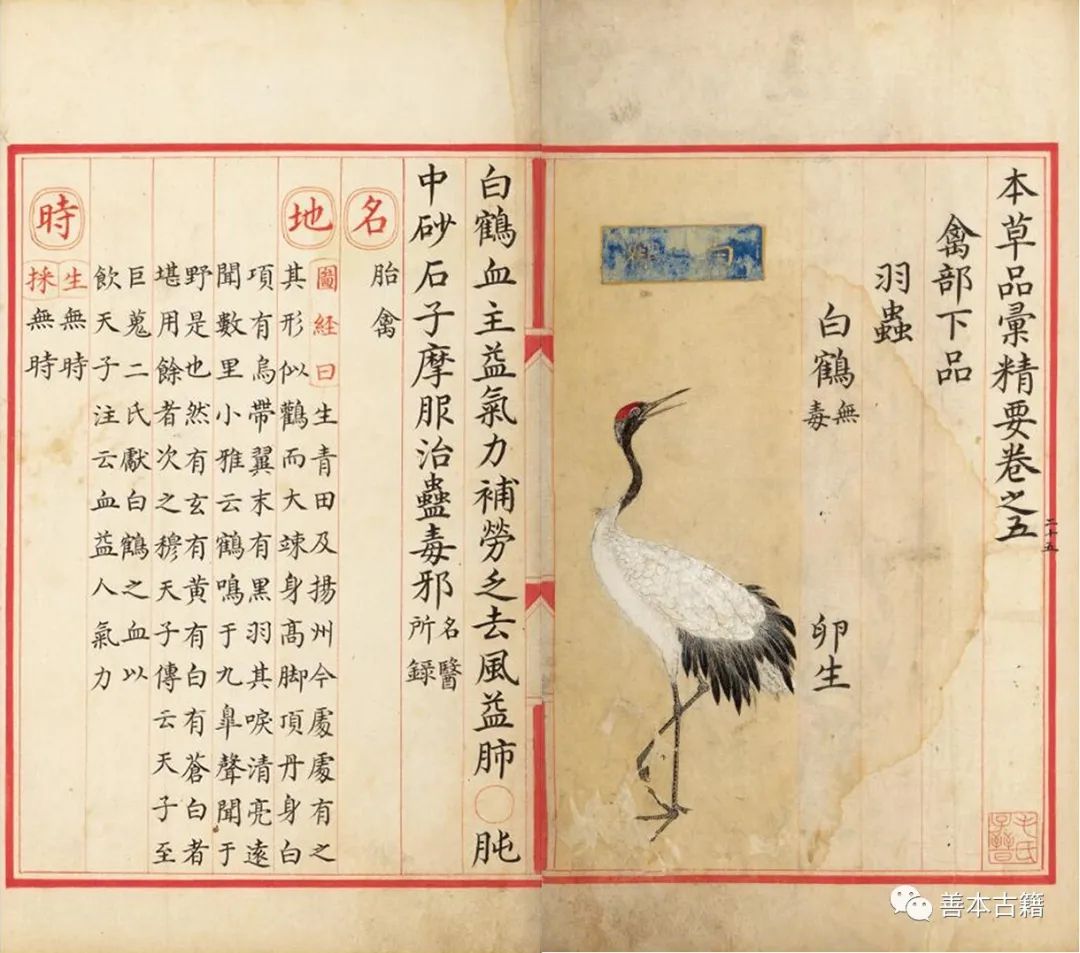 本草品彙精要卷之五
二十五
禽部下品
羽蟲
白鶴無毒 卵生
白
毛氏子晉
白鶴血主益氣力補勞乏去風益肺○肫
中砂石子摩服治蠱毒邪名醫所錄
名
胎禽
地
圖經曰生青田及揚州今處處有之
其形似鸛而大竦身高脚項丹身白
項有烏帶翼末有黑羽其唳清亮遠
聞數里小雅云鶴鳴于九臯聲聞于
野是也然有玄有黃有白有蒼白者
堪用餘者次之穆天子傳云天子至
巨蒐二氏獻白鶴之血以
飲天子注云血益人氣力
時
生無時
採無時
善本古籍